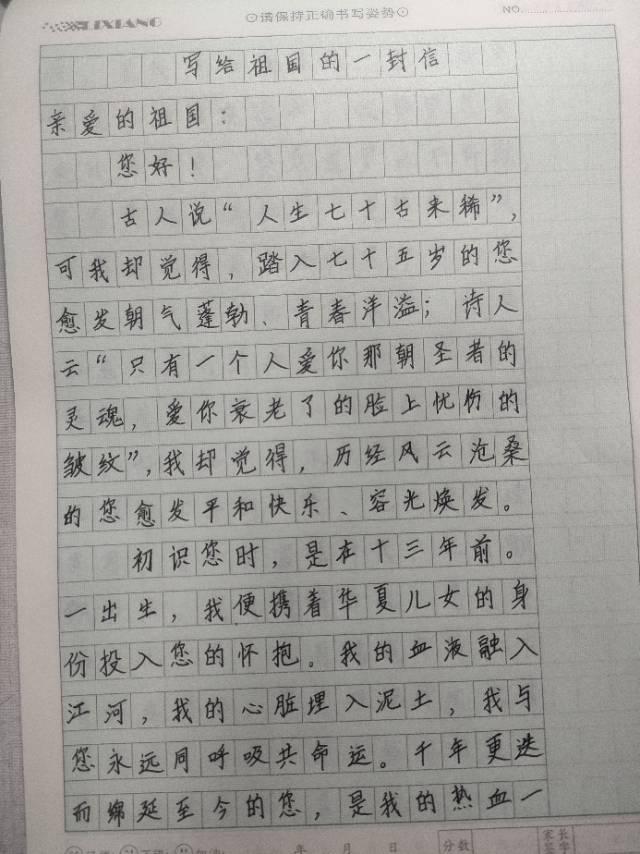 LIXIANG
⊙请保持正确书写姿势⊙
NO.
写给祖国的一封信
亲爱的祖国：
您好！
古人说“人生七十古来稀”，
可我却觉得，踏入七十五岁的您
愈发朝气蓬勃、青春洋溢；诗人
云“只有一个人爱你那朝圣者的
灵魂，爱你衰老了的脸上忧伤的
皱纹”，我却觉得，历经风云沧桑
的您愈发平和快乐、容光焕发。
初识您时，是在十三年前。
一出生，我便携着华夏儿女的身
份投入您的怀抱。我的血液融入
江河，我的心脏埋入泥土，我与
您永远同呼吸共命运。千年更迭
而绵延至今的您，是我的热血一
年 月 日 分数 家长签字